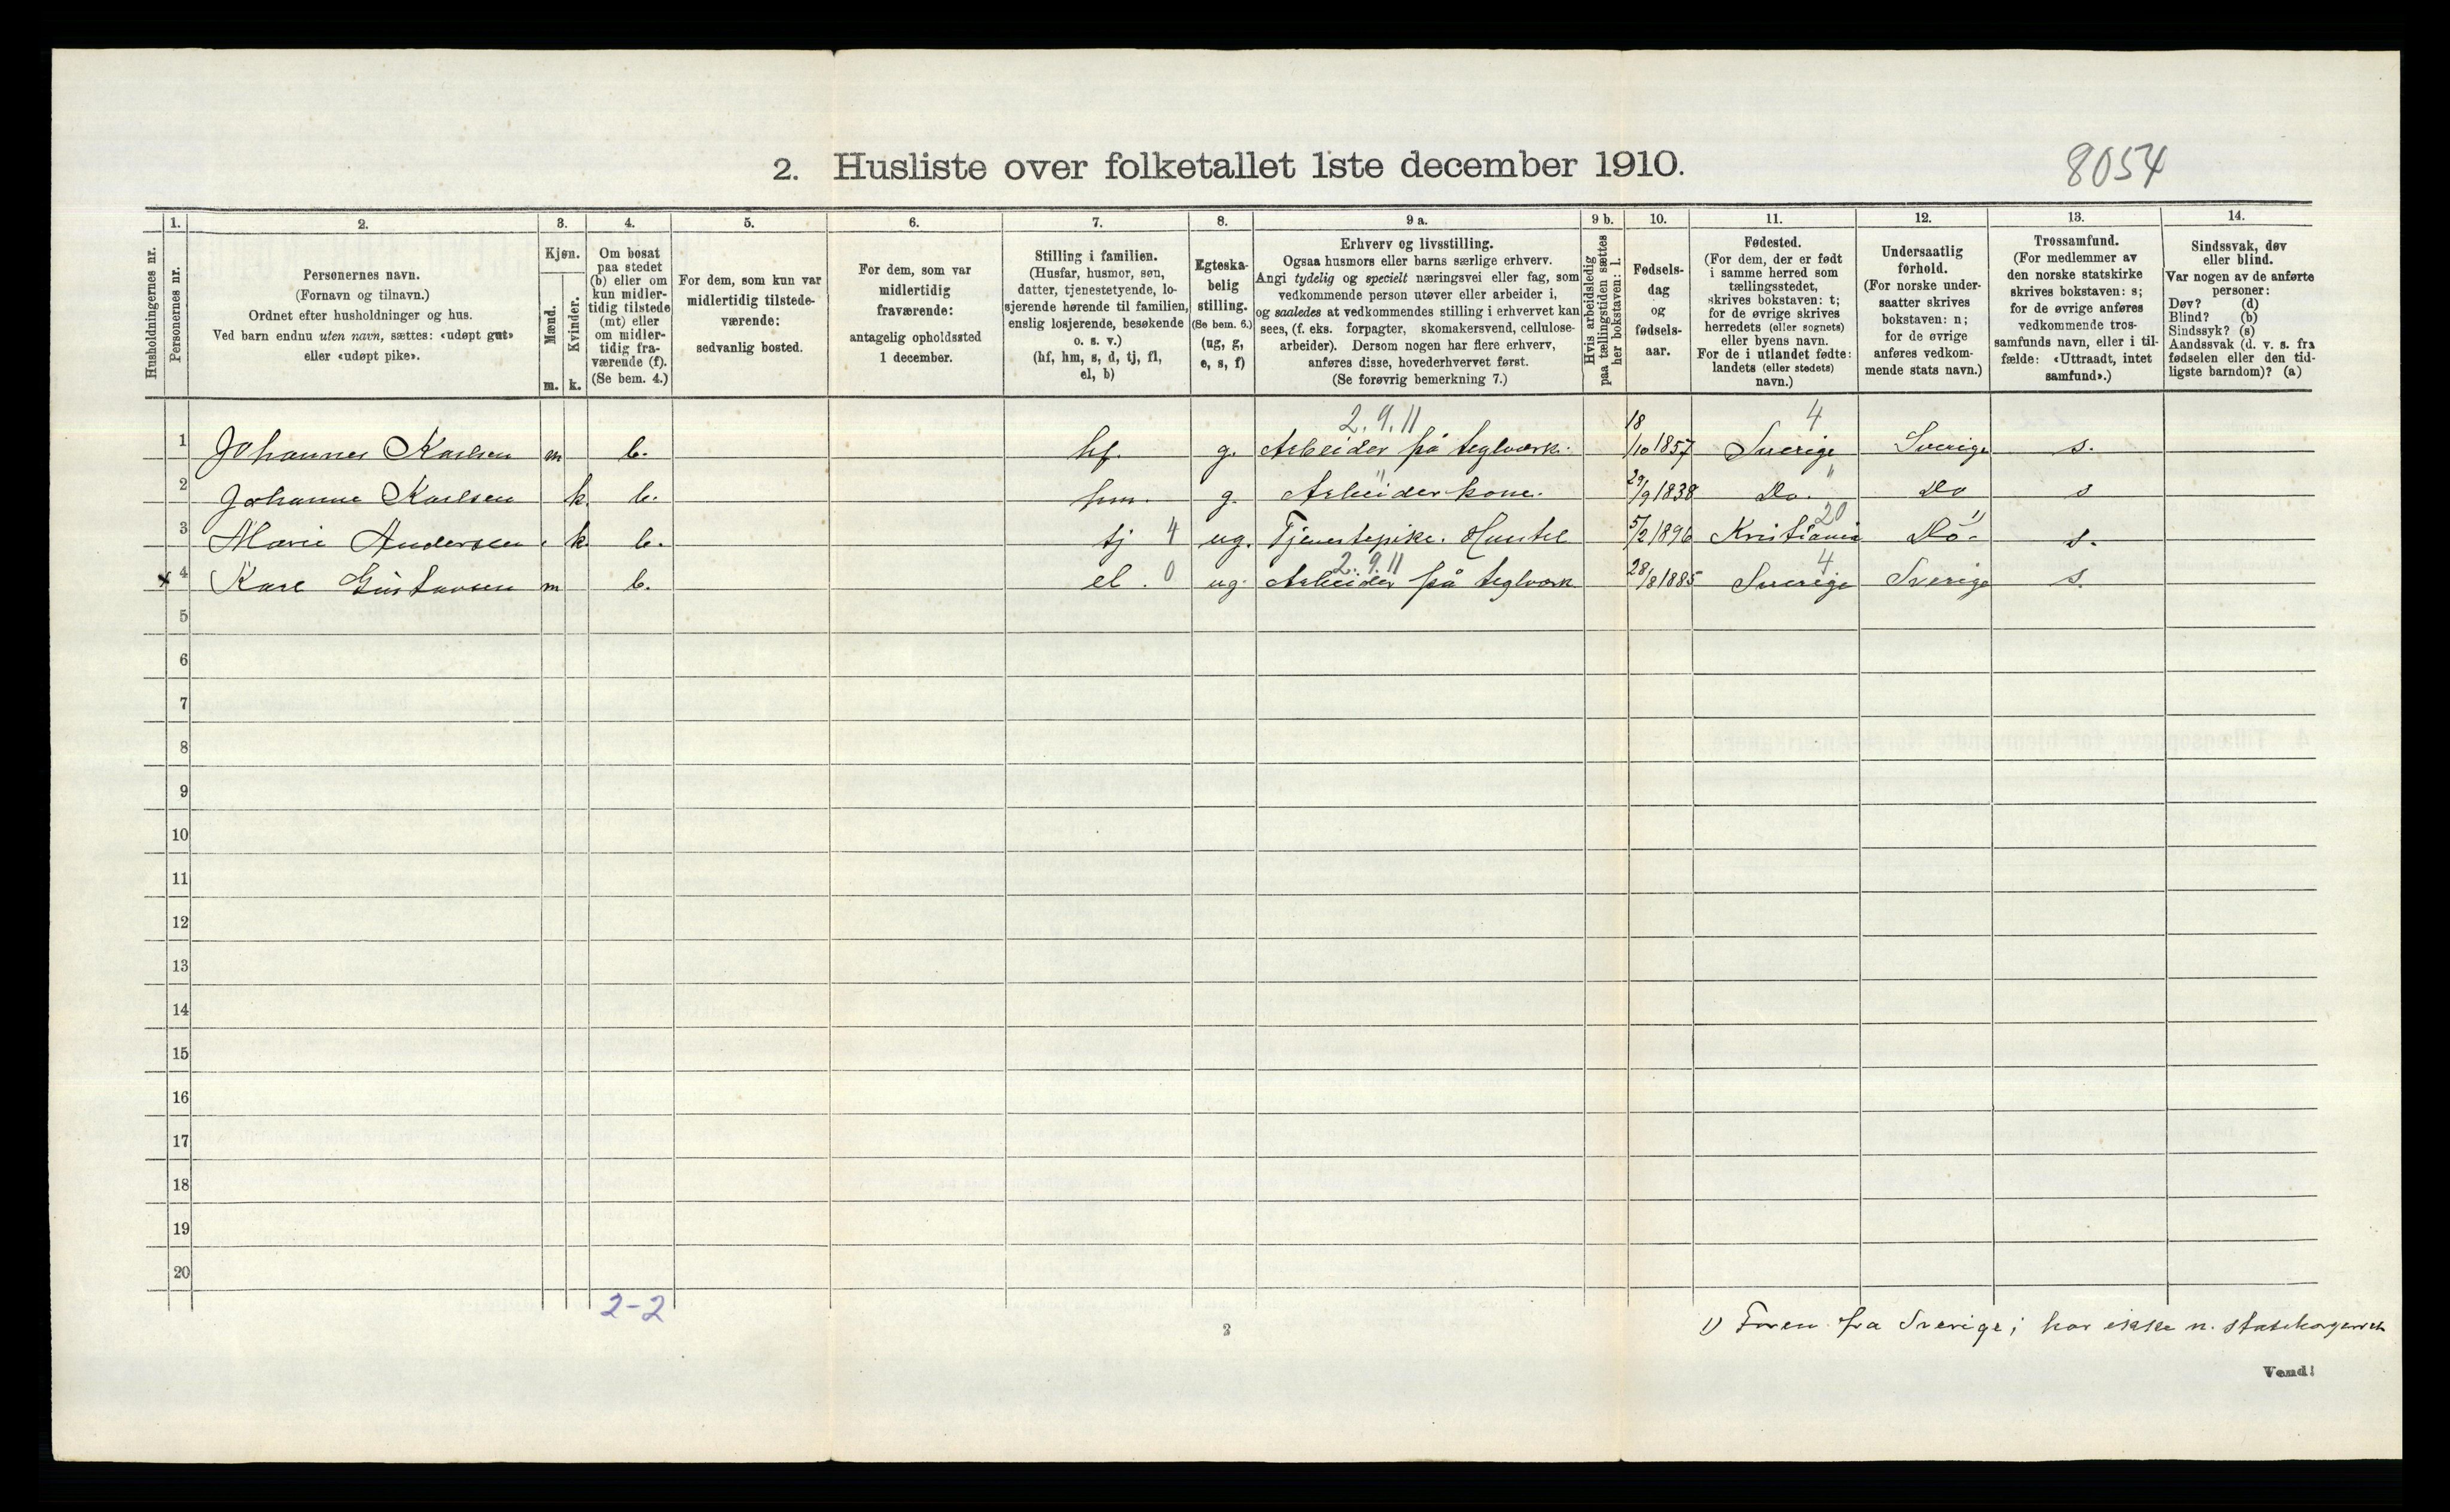 2. Husliste over folketallet 1ste december 1910.
8054
Husholdningernes nr.
1.
Personernes nr.
2.
Personernes navn.
(Fornavn og tilnavn.)
Ordnet efter husholdninger og hus.
Ved barn endnu uten navn, sættes: «udøpt gut»
eller «udøpt pike».
3.
Kjøn.
Mænd.
Kvinder.
m. k.
4.
Om bosat
paa stedet
(b) eller om
kun midler-
tidig tilstede
(mt) eller
om midler-
tidig fra-
værende (f).
(Se bem. 4.)
5.
For dem, som kun var
midlertidig tilstede-
værende:
sedvanlig bosted.
6.
For dem, som var
midlertidig
fraværende:
antagelig opholdssted
1 december.
7.
Stilling i familien.
(Husfar, husmor, søn,
datter, tjenestetyende, lo-
sjerende hørende til familien,
enslig losjerende, besøkende
o. s. v.)
(hf, hm, s, d, tj, fl,
el, b)
8.
Egteska-
belig
stilling.
(Se bem. 6.)
(ug, g,
e, s, f)
9 a.
Erhverv og livsstilling.
Ogsaa husmors eller barns særlige erhverv.
Angi tydelig og specielt næringsvei eller fag, som
vedkommende person utøver eller arbeider i,
og saaledes at vedkommendes stilling i erhvervet kan
sees, (f. eks. forpagter, skomakersvend, cellulose-
arbeider). Dersom nogen har flere erhverv,
anføres disse, hovederhvervet først.
(Se forøvrig bemerkning 7.)
9 b.
Hvis arbeidsledig
paa tællingstiden sættes
her bokstaven: l.
10.
Fødsels-
dag
og
fødsels-
aar.
11.
Fødested.
(For dem, der er født
i samme herred som
tællingsstedet,
skrives bokstaven: t;
for de øvrige skrives
herredets (eller sognets)
eller byens navn.
For de i utlandet fødte:
landets (eller stedets)
navn.)
12.
Undersaatlig
forhold.
(For norske under-
saatter skrives
bokstaven: n;
for de øvrige
anføres vedkom-
mende stats navn.)
13.
Trossamfund.
(For medlemmer av
den norske statskirke
skrives bokstaven: s;
for de øvrige anføres
vedkommende tros-
samfunds navn, eller i til-
fælde: «Uttraadt, intet
samfund».)
14.
Sindssvak, døv
eller blind.
Var nogen av de anførte
personer:
Døv? (d)
Blind? (b)
Sindssyk? (s)
Aandssvak (d. v. s. fra
fødselen eller den tid-
ligste barndom)? (a)
2.9.11 4
1 Johannes Karlsen m b. hf. g. Arbeider på teglverk. 18/10 1857 Sverige Sverige s.
" "
2 Johanne Karlsen k. b. hm. g. Arbeiderkone. 29/9 1838 Do. Do s
20
3 Marie Andersen. k b. tj 4 ug. Tjenestepike. Hustel 5/2 1896 Kristiania Do 1) s.
2.9.11 4
x 4 Karl Gustavsen m b. el. 0 ug. Arbeider på teglverk 28/8 1885 Sverige Sverige s.
5
6
7
8
9
10
11
12
13
14
15
16
17
18
19
20
2-2
2
1) Foren. fra Sverige; har ikke n. statsborgerret
Vend!